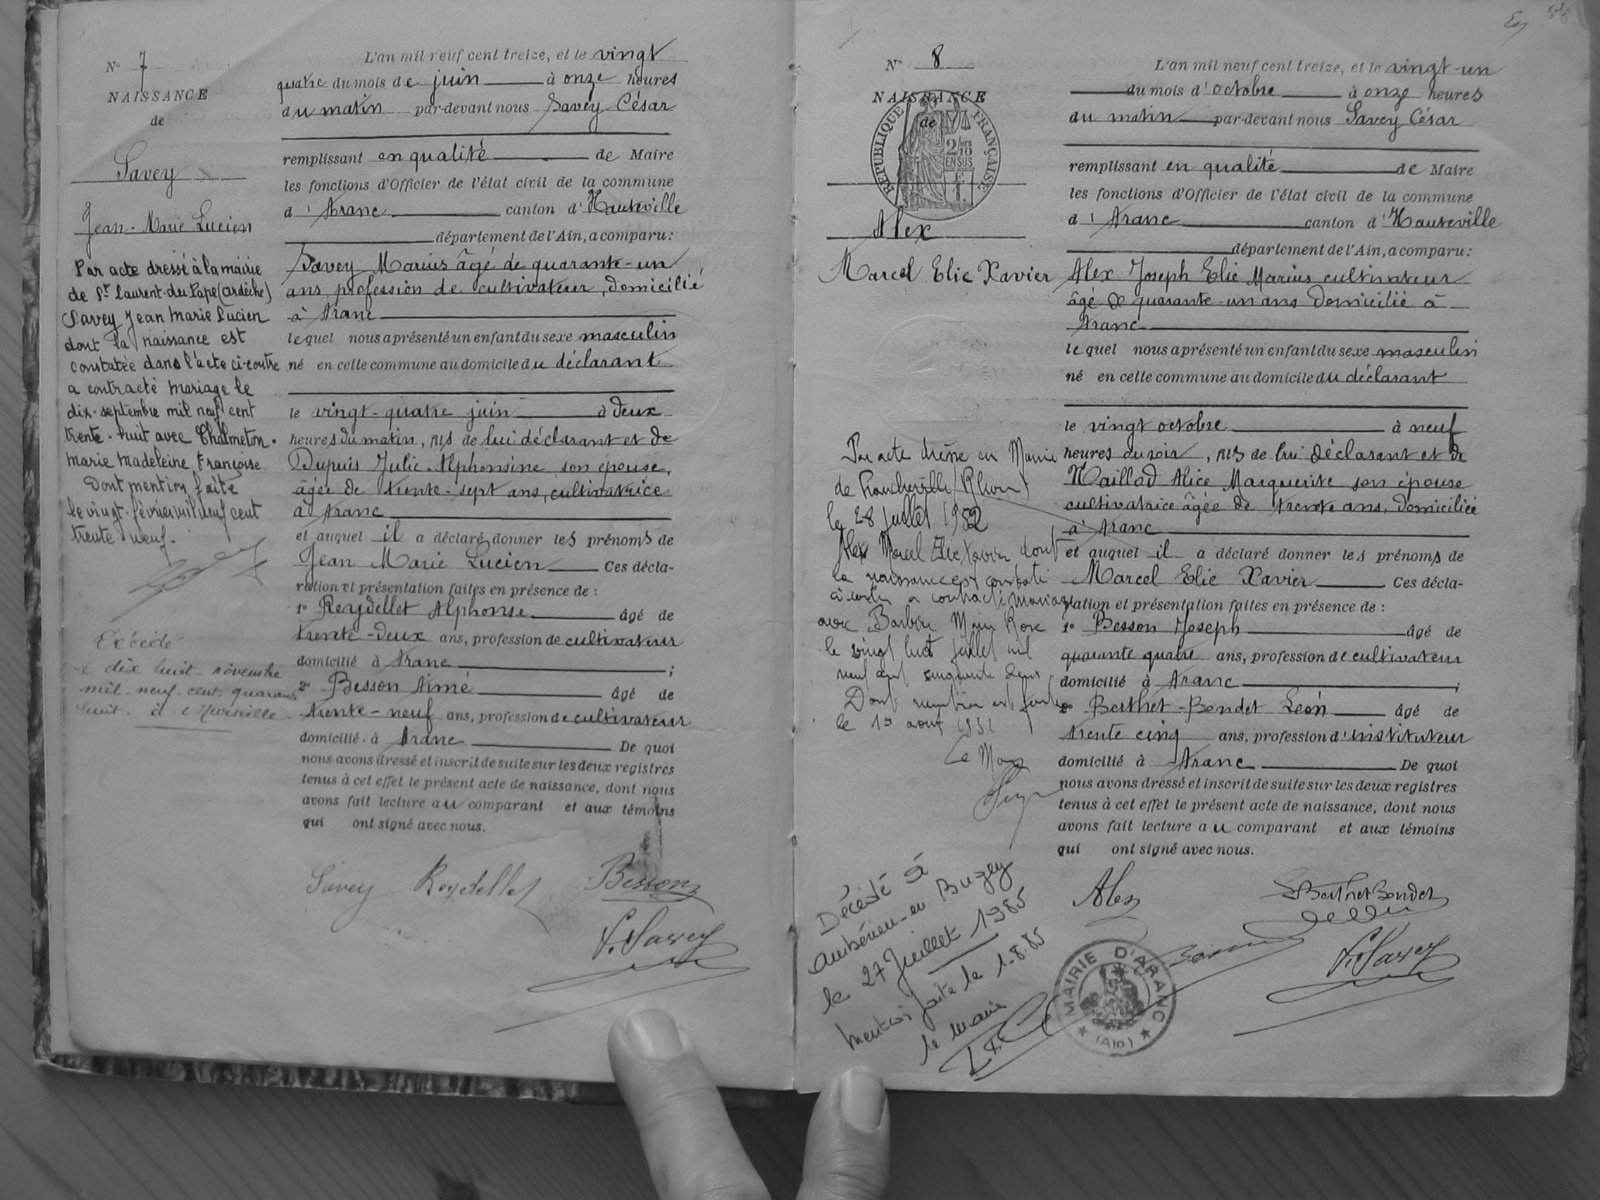 N° 7
NAISSANCE
de
Savey
Jean-Marie Lucien
Par acte dressé à la mairie
de St Laurent-du-Pape (ardèche)
Savey Jean Marie Lucien
dont la naissance est
constatée dans l'acte ci-contre
a contracté mariage le
dix-septembre mil neuf cent
trente-huit avec Chalmeton
Marie Madeleine Françoise
Dont mention faite
le vingt-février mil neuf cent
trente neuf.
dix huit novembre
mil neuf cent quarante
huit à
L'an mil neuf cent treize, et le vingt
quatre du mois de juin à onze heures
du matin par-devant nous Savey César
remplissant en qualité de Maire
les fonctions d'Officier de l'état civil de la commune
d' Aranc canton d'Hauteville
département de l'Ain, a comparu :
Savey Marius âgé de quarante-un
ans, profession de cultivateur, domicilié
à Aranc
lequel nous a présenté un enfant du sexe masculin
né en celle commune au domicile du déclarant
le vingt-quatre juin à deux
heures du matin, fils de lui déclarant et de
Dupuis Julie Alphonsine son épouse,
âgée de trente-sept ans, cultivatrice
à Aranc
et auquel il a déclaré donner les prénoms de
Jean Marie Lucien Ces décla-
ration et présentation faites en présence de :
1° Reydellet Alphonse âgé de
trente-deux ans, profession de cultivateur
domicilié à Aranc ;
2° Besson Aimé âgé de
trente-neuf ans, profession de cultivateur
domicilié à Aranc De quoi
nous avons dressé et inscrit de suite sur les deux registres
tenus à cet effet le présent acte de naissance, dont nous
avons fait lecture au comparant et aux témoins
qui ont signé avec nous.
Savey Reydellet Besson
C. Savey
N° 8
NAISSANCE
de
REPUBLIQUE FRANÇAISE
Alex
Marcel Elie Xavier
Par acte dressé en Mairie
de Francheville (Rhône)
le 28 juillet 1952
Alex Marcel Elie Xavier dont
la naissance est constatée
ci-contre a contracté mariage
avec Marie Rose
le vingt huit juillet mil
neuf cent cinquante deux
Dont mention est faite
le 1er août
Le Maire
Décédé à
Ambérieu-en Bugey
le 27 Juillet 1985
Mention faite le 1.8.85
le maire
L'an mil neuf cent treize, et le vingt-un
du mois d'octobre à onze heures
du matin par-devant nous Savey César
remplissant en qualité de Maire
les fonctions d'Officier de l'état civil de la commune
d' Aranc canton d'Hauteville
département de l'Ain, a comparu :
Alex Joseph Elie Marius cultivateur
âgé de quarante-un ans domicilié à
Aranc
lequel nous a présenté un enfant du sexe masculin
né en celle commune au domicile du déclarant
le vingt octobre à neuf
heures du soir, fils de lui déclarant et de
Maillad Alice Marguerite son épouse
cultivatrice âgée de trente ans, domiciliée
à Aranc
et auquel il a déclaré donner les prénoms de
Marcel Elie Xavier Ces décla-
ration et présentation faites en présence de :
1° Besson Joseph âgé de
quarante quatre ans, profession de cultivateur
domicilié à Aranc ;
2° Berthet-Bondet Léon âgé de
trente cinq ans, profession d'instituteur
domicilié à Aranc De quoi
nous avons dressé et inscrit de suite sur les deux registres
tenus à cet effet le présent acte de naissance, dont nous
avons fait lecture au comparant et aux témoins
qui ont signé avec nous.
Alex Berthet Bondet
Besson C. Savey
MAIRIE D'ARANC
(Ain)